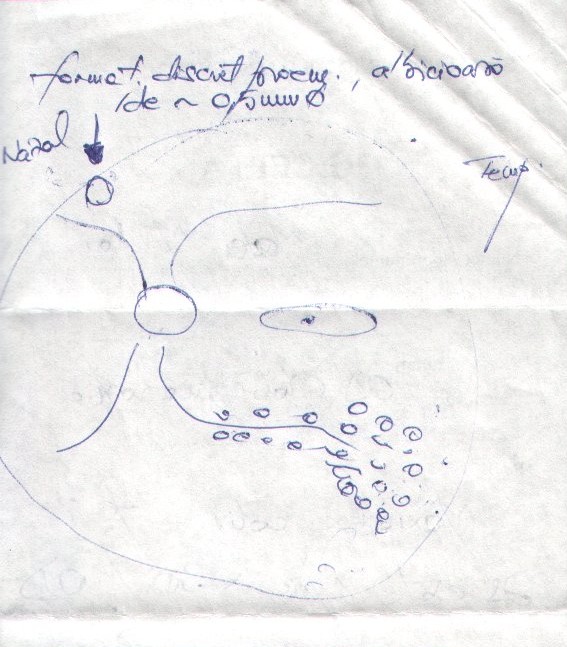 format. discret proem., albicioasă
de ~ 0,5mm Ø
Nazal
Temp.